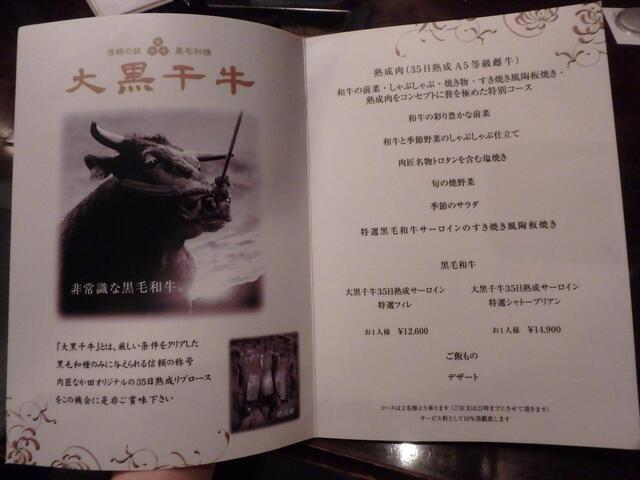 信頼の証 黒毛和種
大黒千牛
非常識な黒毛和牛。
『大黒千牛』とは、厳しい条件をクリアした
黒毛和種のみに与えられる信頼の称号
肉匠なか田オリジナルの35日熟成リブロース
をこの機会に是非ご賞味下さい
熟成庫
熟成肉(35日熟成A5等級雌牛)
和牛の前菜・しゃぶしゃぶ・焼き物・すき焼き風陶板焼き・
熟成肉をコンセプトに贅を極めた特別コース
和牛の彩り豊かな前菜
和牛と季節野菜のしゃぶしゃぶ仕立て
肉匠名物トロタンを含む塩焼き
旬の焼野菜
季節のサラダ
特選黒毛和牛サーロインのすき焼き風陶板焼き
黒毛和牛
大黒千牛35日熟成サーロイン
特選フィレ
お1人様 ¥12,600
大黒千牛35日熟成サーロイン
特選シャトーブリアン
お1人様 ¥14,900
ご飯もの
デザート
コースは2名様より承ります(ご注文は21時までとさせて頂きます)
サービス料として10%頂戴致します